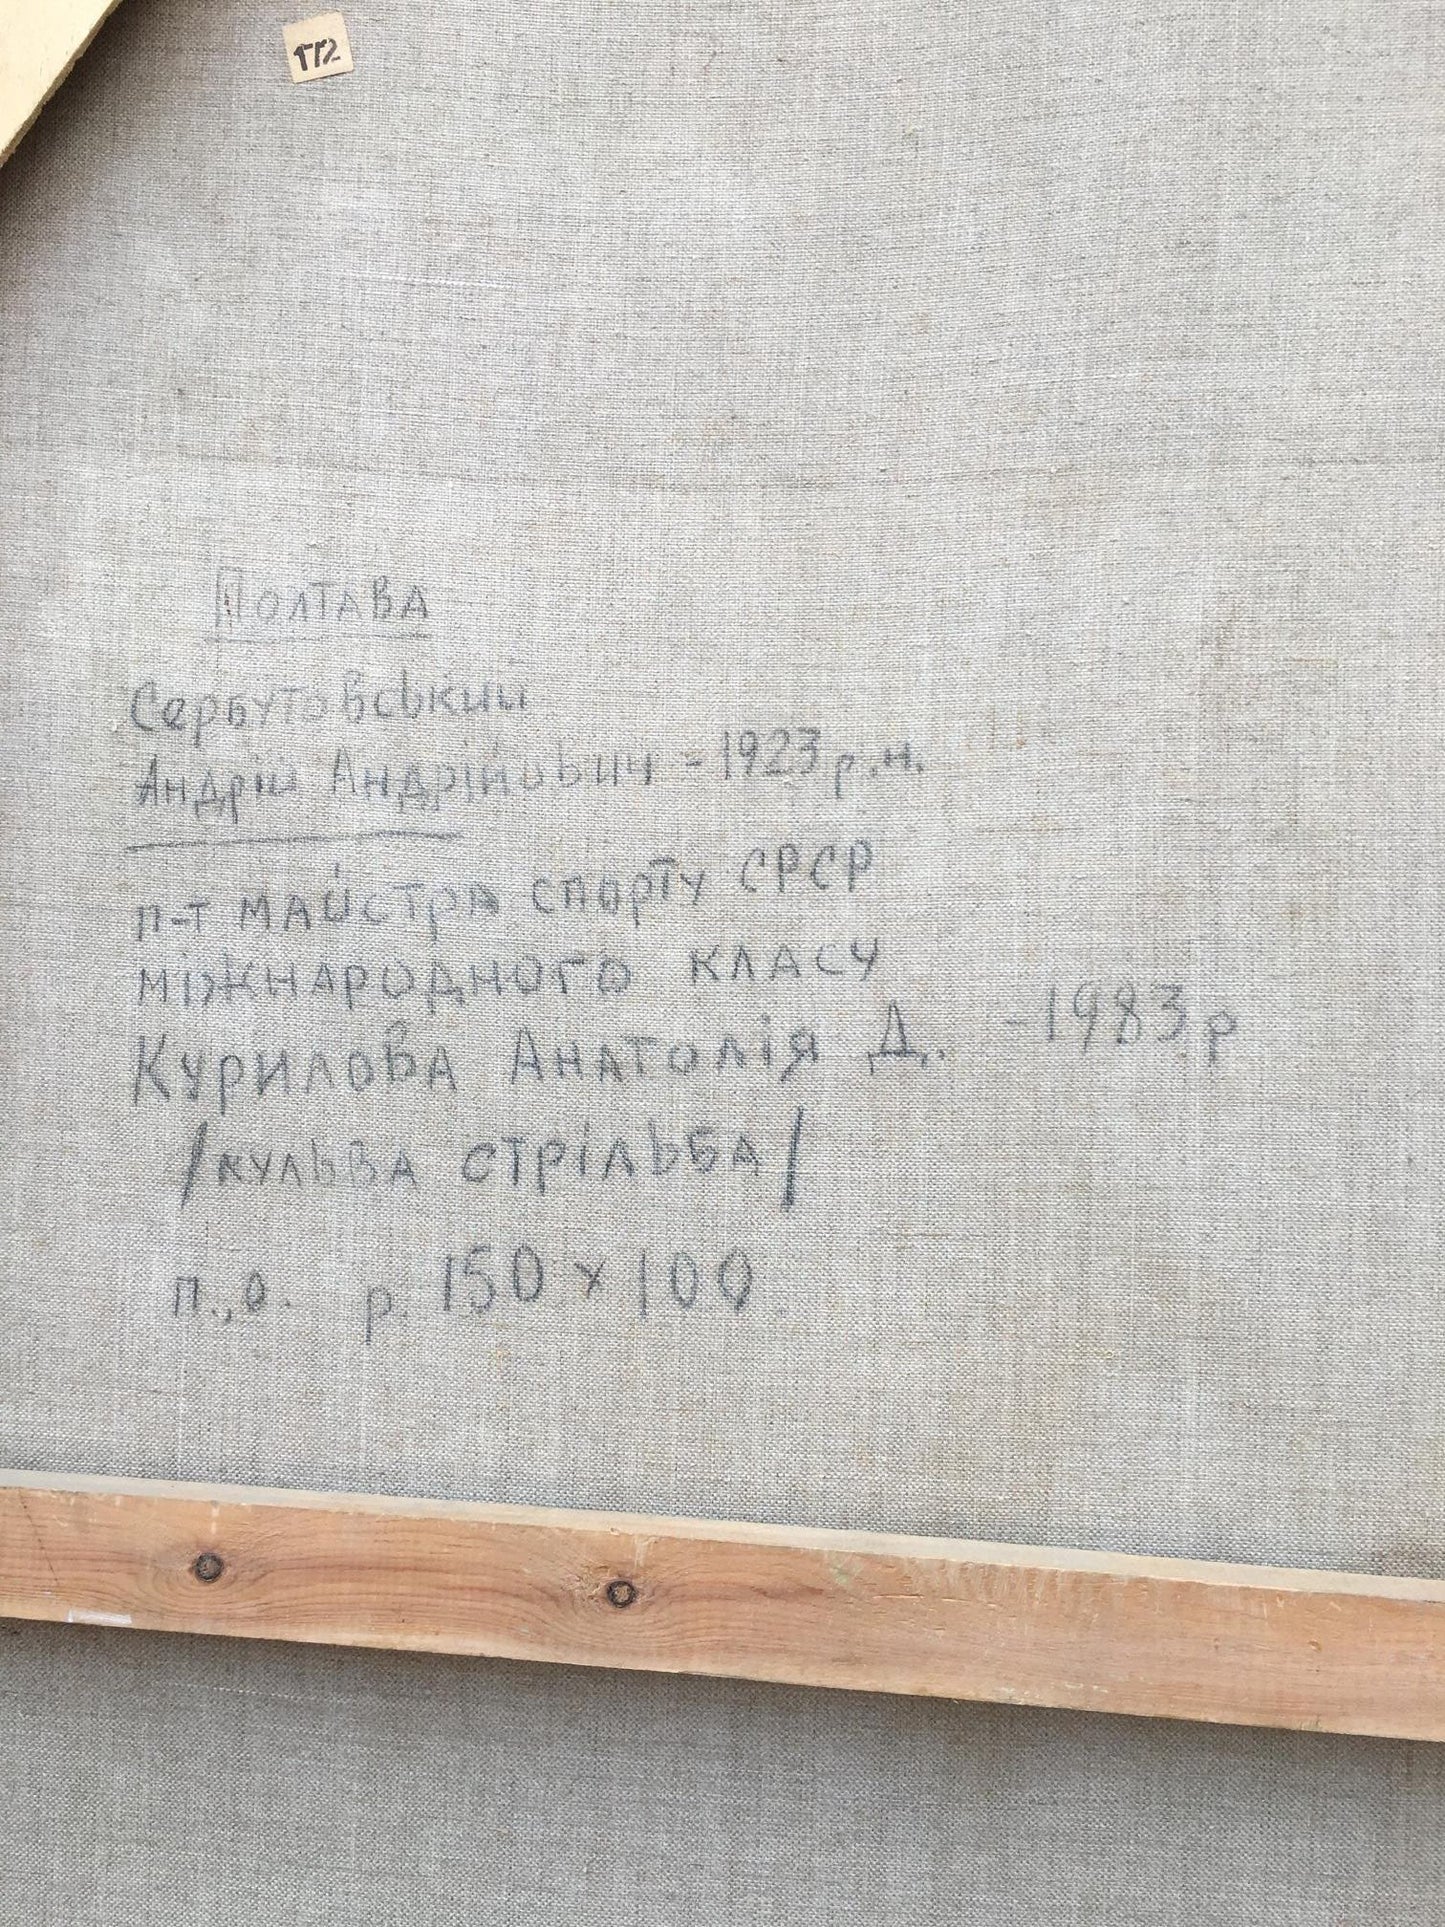 172
Полтава
Сербутовський
Андрій Андрійович - 1923 р.н.
п-т майстра спорту СРСР
міжнародного класу
Курилова Анатолія Д. - 1983 р
/кульва стрільба/
п.,о. р. 150 х 100.